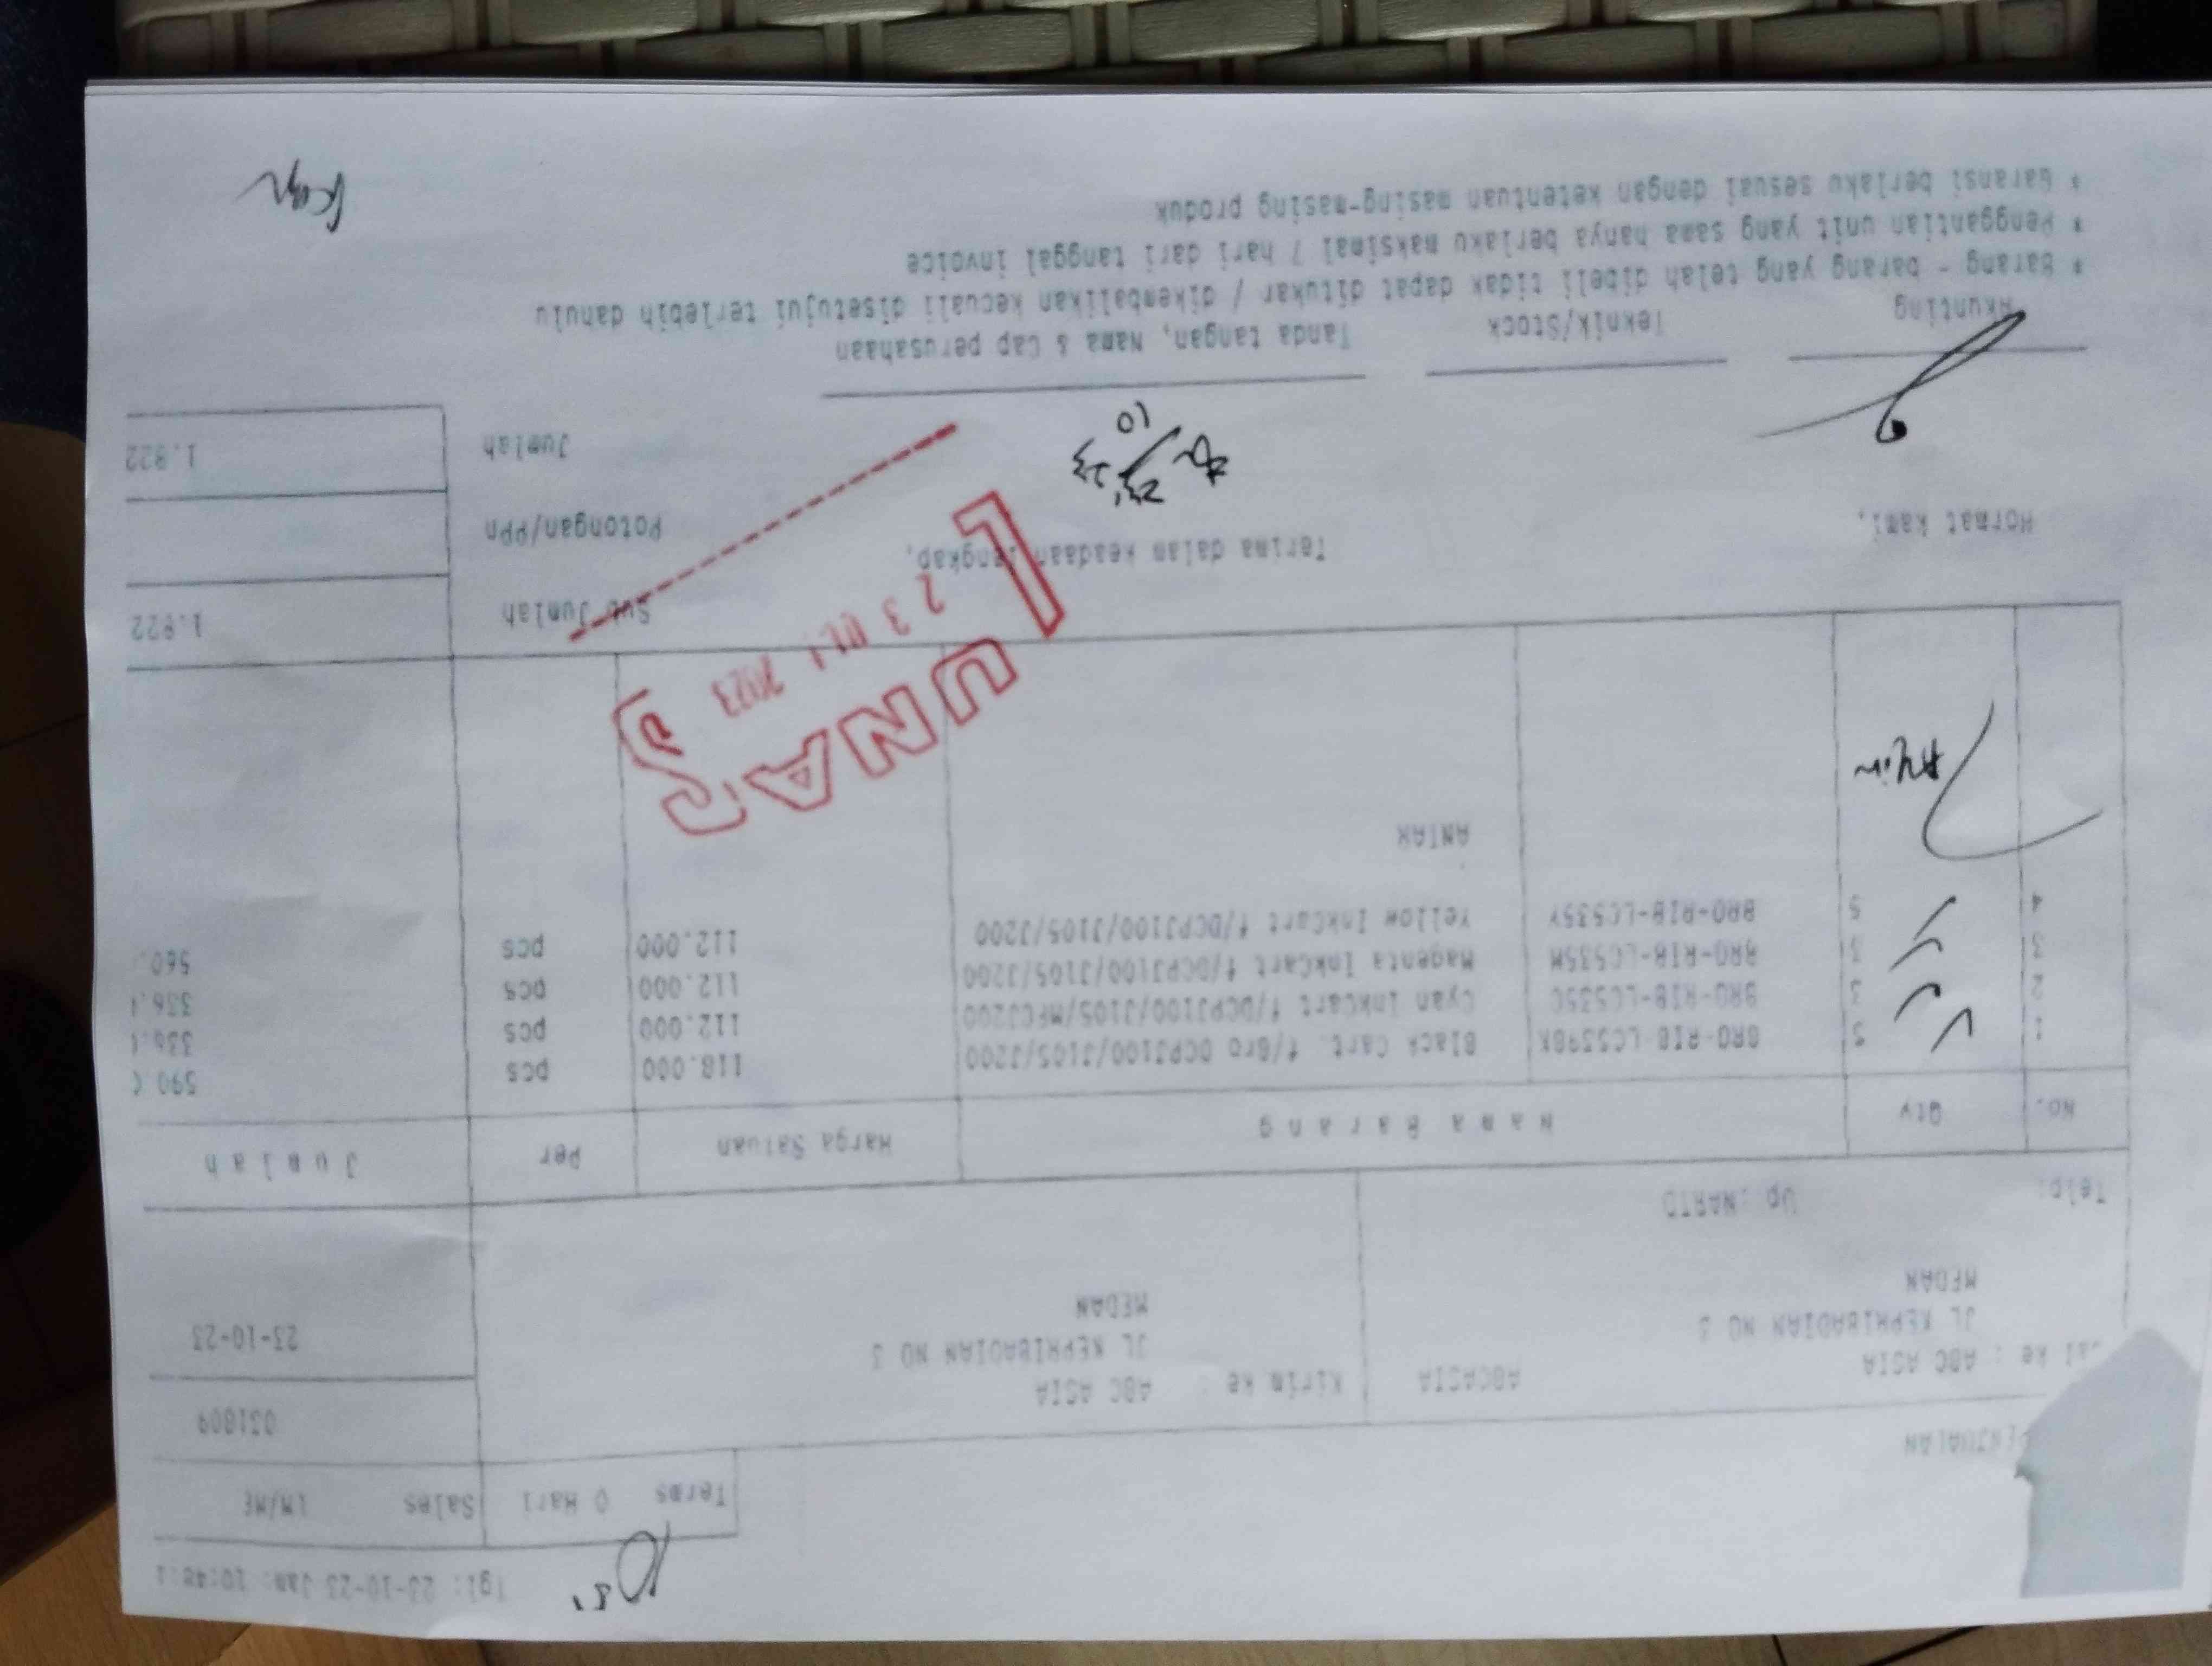 Tgl: 23-10-23 Jam: 10:48:
Terms 0 Hari Sales LM/ME
PENJUALAN
031809
ke : ABC ASIA ABCASIA Kirim ke : ABC ASIA
JL KEPRIBADIAN NO 3 JL KEPRIBADIAN NO 3
MEDAN MEDAN
23-10-23
Telp: Up :NARTO
No. Qty Nama Barang Harga Satuan Per Jumlah
1 5 BRO-RIB-LC539BK Black Cart. f/Bro DCPJ100/J105/J200 118.000 pcs 590.
2 3 BRO-RIB-LC535C Cyan InkCart f/DCPJ100/J105/MFCJ200 112.000 pcs 336.
3 3 BRO-RIB-LC535M Magenta InkCart f/DCPJ100/J105/J200 112.000 pcs 336.
4 5 BRO-RIB-LC535Y Yellow InkCart f/DCPJ100/J105/J200 112.000 pcs 560.
ANTAR
LUNAS
23 2023
Sub Jumlah 1.822
Hormat kami, Terima dalam keadaan lengkap,
Potongan/PPn
23/10 23
Jumlah 1.822
Akunting Teknik/Stock Tanda tangan, Nama & Cap perusahaan
* Barang - barang yang telah dibeli tidak dapat ditukar / dikembalikan kecuali disetujui terlebih dahulu
* Penggantian unit yang sama hanya berlaku maksimal 7 hari dari tanggal invoice
* Garansi berlaku sesuai dengan ketentuan masing-masing produk